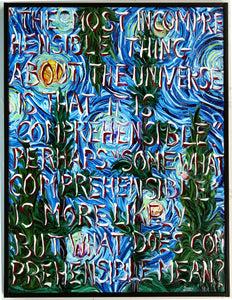 THE MOST INCOMPRE
HENSIBLE THING
ABOUT THE UNIVERSE
IS THAT IT IS
COMPREHENSIBLE
PERHAPS SOMEWHAT
COMPREHENSIBLE
IS MORE LIKELY
BUT WHAT DOES COM
PREHENSIBLE MEAN?